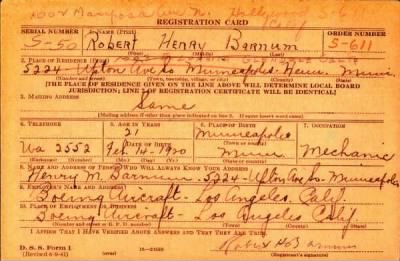 REGISTRATION CARD
SERIAL NUMBER 1. NAME (Print) ORDER NUMBER
S-50 ROBERT HENRY BARNUM S-611
(First) (Middle) (Last)
2. PLACE OF RESIDENCE (Print)
5224 - Upton Ave So Minneapolis Henn. Minn.
(Number and street) (Town, township, village, or city) (County) (State)
[THE PLACE OF RESIDENCE GIVEN ON THE LINE ABOVE WILL DETERMINE LOCAL BOARD
JURISDICTION; LINE 2 OF REGISTRATION CERTIFICATE WILL BE IDENTICAL]
3. MAILING ADDRESS
Same
[Mailing address if other than place indicated on line 2. If same insert word same]
4. TELEPHONE 5. AGE IN YEARS 6. PLACE OF BIRTH 7. OCCUPATION
21 Minneapolis
DATE OF BIRTH
Wa 2552 Feb 14 1920 Minn Mechanic
(Exchange) (Number) (Mo.) (Day) (Yr.) (State or country)
8. NAME AND ADDRESS OF PERSON WHO WILL ALWAYS KNOW YOUR ADDRESS
Henry M. Barnum - 5224 - Upton Ave So - Minneapolis
9. EMPLOYER'S NAME AND ADDRESS
Boeing Aircraft - Los Angeles, Calif.
10. PLACE OF EMPLOYMENT OR BUSINESS
Boeing Aircraft - Los Angeles Calif.
I AFFIRM THAT I HAVE VERIFIED ABOVE ANSWERS AND THAT THEY ARE TRUE.
D. S. S. Form 1
(Revised 6-9-41) Robert H Barnum